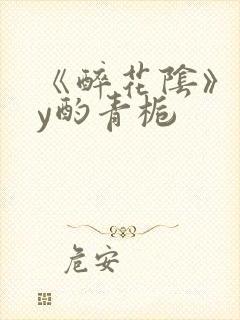 《醉花陰》
y酌青栀
危安